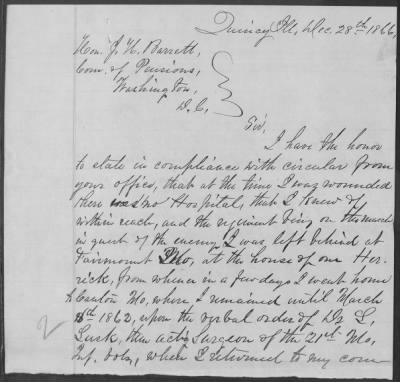 Quincy Ill, Dec. 28th 1866,
Hon. J. H. Barrett,
Com. of Pensions,
Washington,
D.C.
Sir,
I have the honor
to state in compliance with circular from
your office, that at the time I was wounded
there was no Hospitals, that I knew of
within reach, and the regiment being on the march
in quest of the enemy, I was left behind at
Fairmount Mo, at the house of one Her-
rick, from whence in a few days I went home
to Canton Mo, where I remained until March
8th 1862, upon the verbal order of Dr L,
Lusk, then actg Surgeon of the 21st Mo,
Inf. Vols, when I returned to my com
2